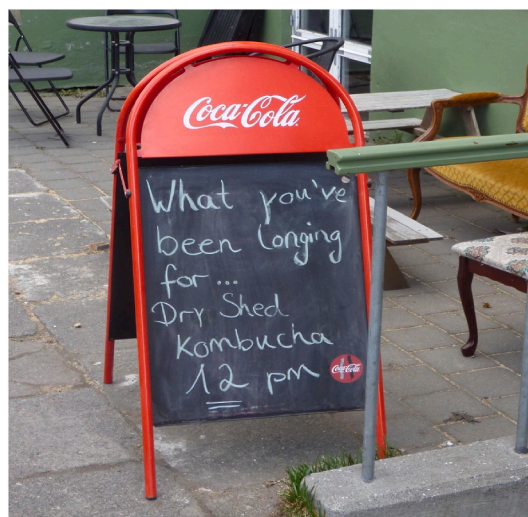 Coca-Cola
What you've
been longing
for...
Dry Shed
Kombucha
12 pm
Coca-Cola